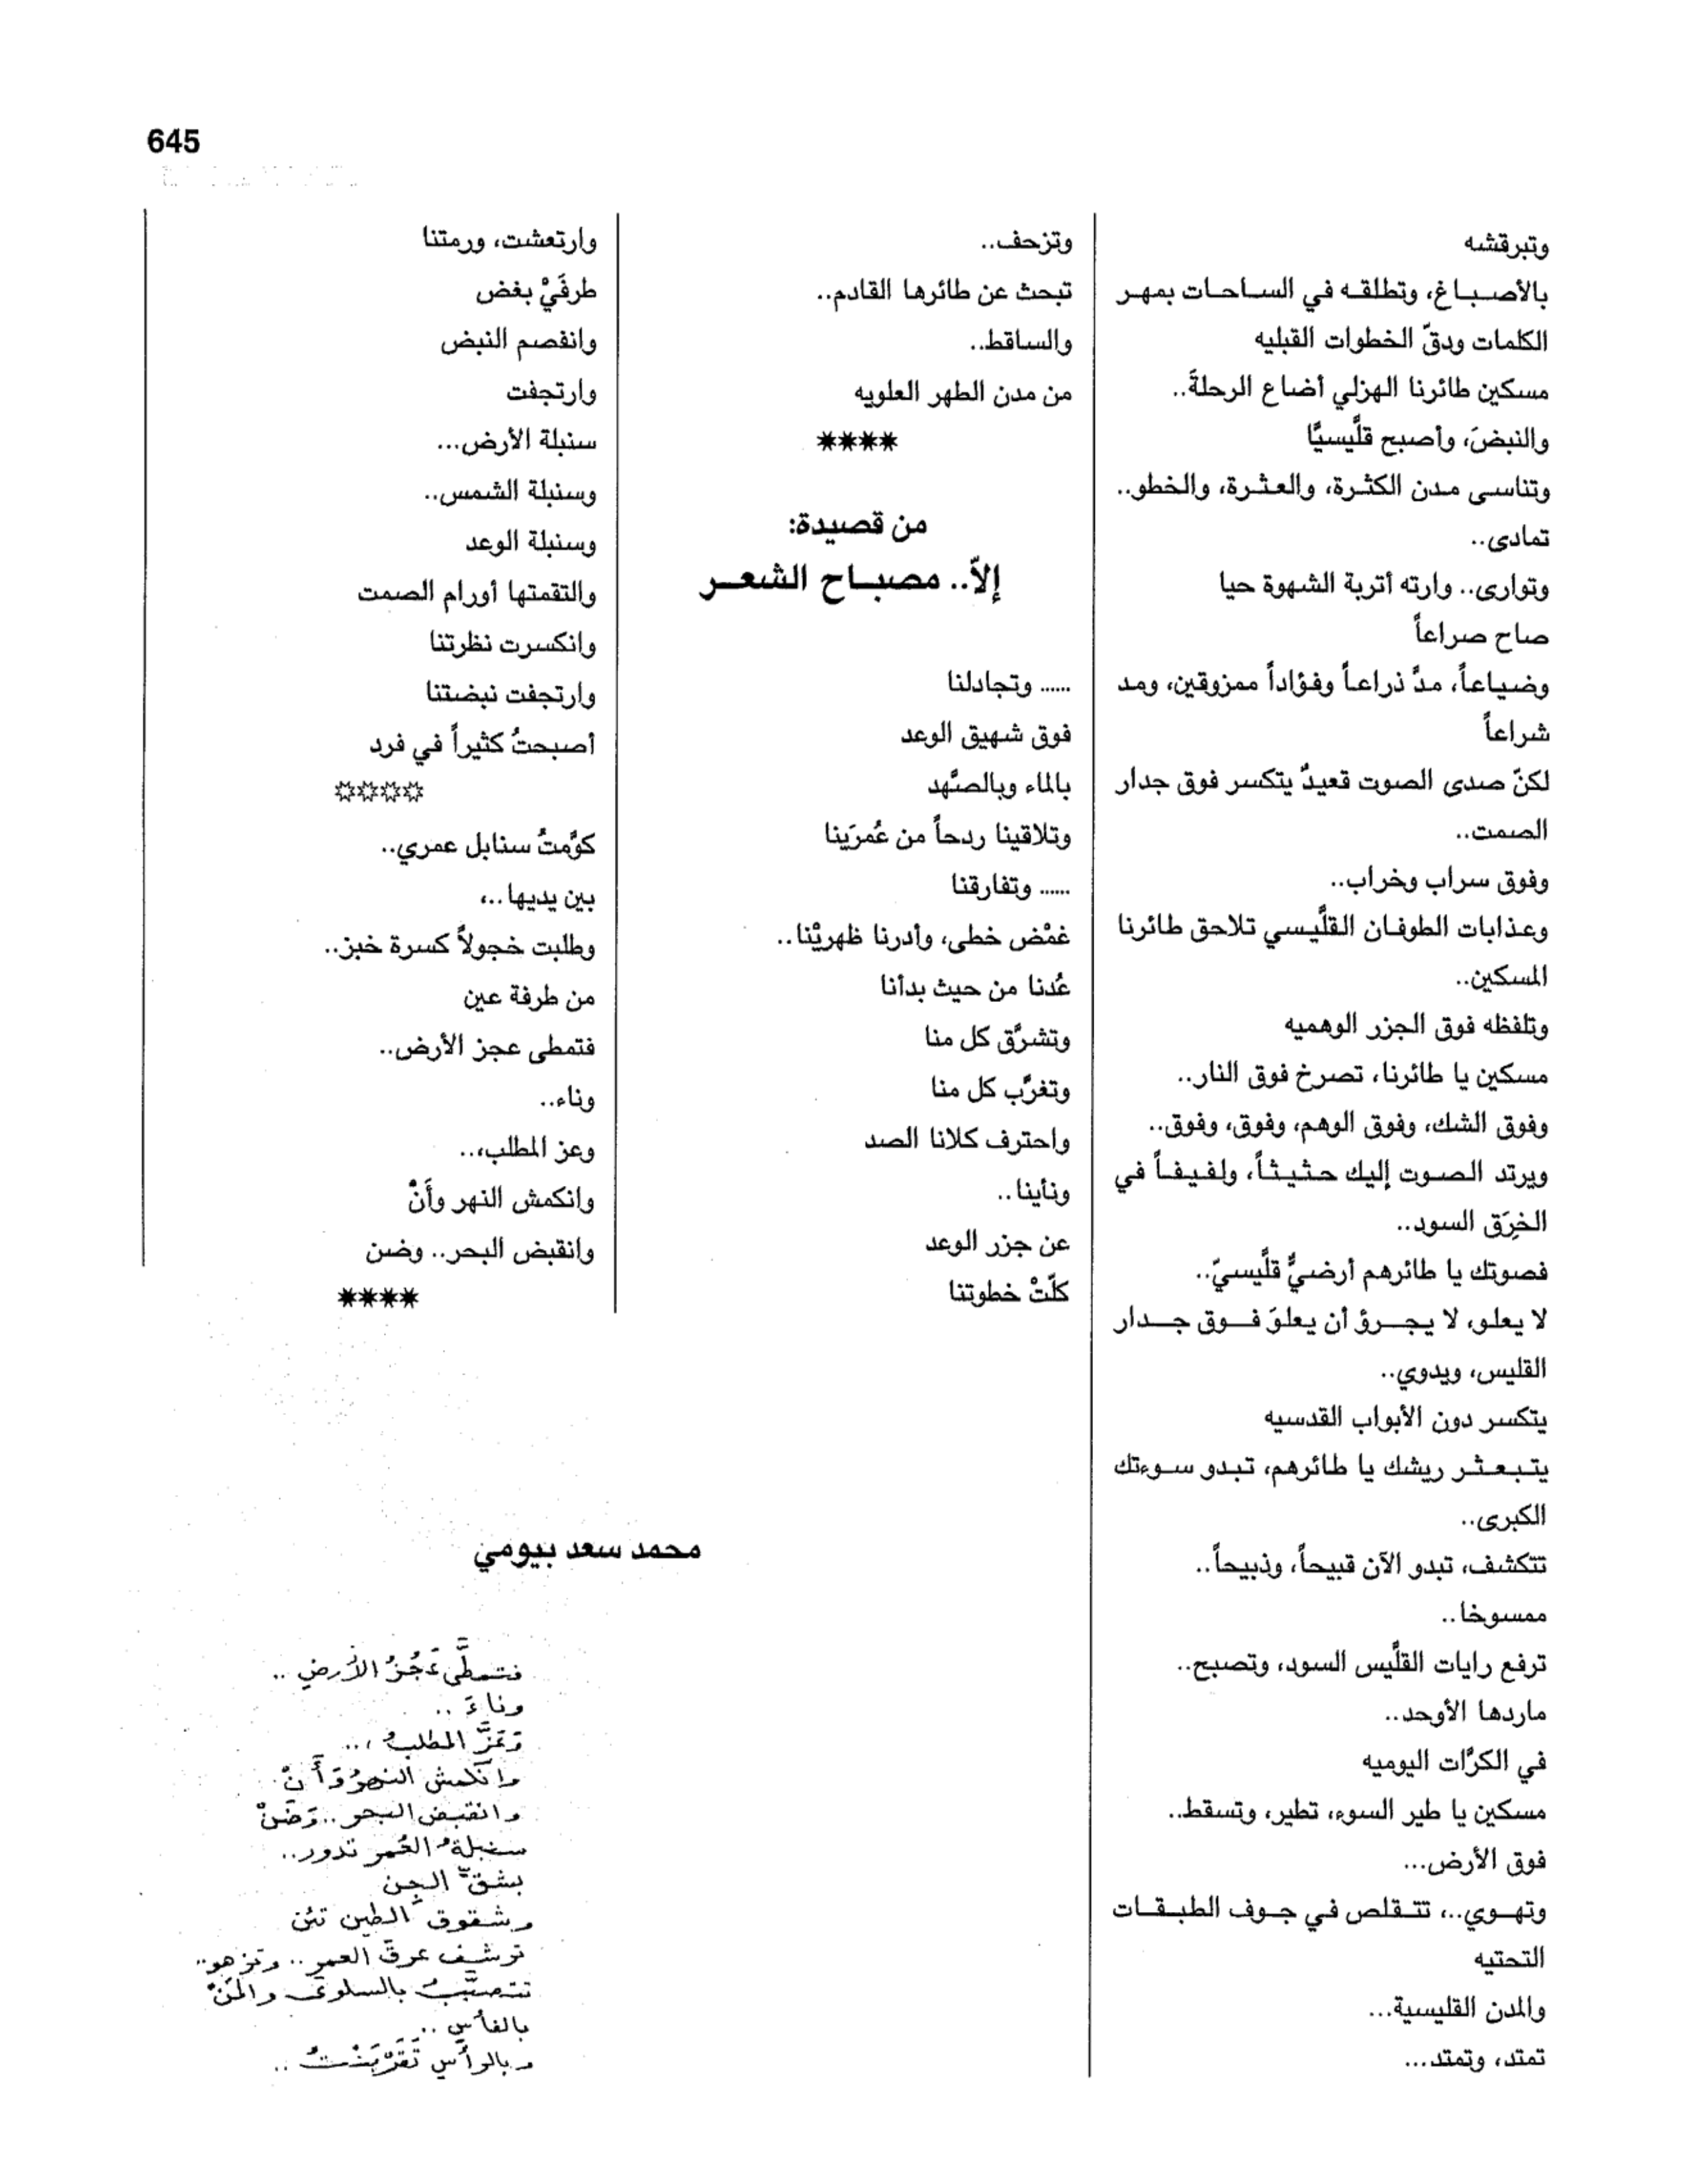 645
وتبرقشه
بالأصباغ، وتطلقه في الساحات بمهر
الكلمات ودقّ الخطوات القبليه
مسكين طائرنا الهزلي أضاع الرحلةَ..
والنبضَ، وأصبح قلَّيسيًّا
وتناسى مدن الكثرة، والعثرة، والخطو..
تمادى..
وتوارى.. وارته أتربة الشهوة حيا
صاح صراعاً
وضياعاً، مدَّ ذراعاً وفؤاداً ممزوقين، ومد
شراعاً
لكنّ صدى الصوت قعيدٌ يتكسر فوق جدار
الصمت..
وفوق سراب وخراب..
وعذابات الطوفان القلَّيسي تلاحق طائرنا
المسكين..
وتلفظه فوق الجزر الوهميه
مسكين يا طائرنا، تصرخ فوق النار..
وفوق الشك، وفوق الوهم، وفوق، وفوق..
ويرتد الصوت إليك حثيثاً، ولفيفاً في
الخِرَق السود..
فصوتك يا طائرهم أرضيٌّ قلَّيسيّ..
لا يعلو، لا يجرؤ أن يعلوَ فوق جدار
القليس، ويدوي..
يتكسر دون الأبواب القدسيه
يتبعثر ريشك يا طائرهم، تبدو سوءتك
الكبرى..
تتكشف، تبدو الآن قبيحاً، وذبيحاً..
ممسوخا..
ترفع رايات القلَّيس السود، وتصبح..
ماردها الأوحد..
في الكرَّات اليوميه
مسكين يا طير السوء، تطير، وتسقط..
فوق الأرض...
وتهوي..، تتقلص في جوف الطبقات
التحتيه
والمدن القليسية...
تمتد، وتمتد...
وتزحف..
تبحث عن طائرها القادم..
والساقط..
من مدن الطهر العلويه
****
من قصيدة:
إلاّ.. مصباح الشعر
...... وتجادلنا
فوق شهيق الوعد
بالماء وبالصَّهد
وتلاقينا ردحاً من عُمرَينا
...... وتفارقنا
غمْض خطى، وأدرنا ظهريْنا..
عُدنا من حيث بدأنا
وتشرَّق كل منا
وتغرَّب كل منا
واحترف كلانا الصد
ونأينا..
عن جزر الوعد
كلّتْ خطوتنا
وارتعشت، ورمتنا
طرفَيْ بغض
وانفصم النبض
وارتجفت
سنبلة الأرض...
وسنبلة الشمس..
وسنبلة الوعد
والتقمتها أورام الصمت
وانكسرت نظرتنا
وارتجفت نبضتنا
أصبحتُ كثيراً في فرد
****
كوَّمتُ سنابل عمري..
بين يديها..،
وطلبت خجولاً كسرة خبز..
من طرفة عين
فتمطى عجز الأرض..
وناء..
وعز المطلب،..
وانكمش النهر وأَنْ
وانقبض البحر.. وضن
****
محمد سعد بيومي
فتمطَّى عَجُزُ الأرضِ ..
وناءَ ..
وَعَزَّ المطلبُ ،..
وانكمش النهرُ وَأَنْ
وانقبض البحر.. وَضَنْ
سنبلةُ العُمر تدور..
بشقِّ الجِن
وشقوق الطين تئن
ترشف عرقَ العمر.. وتزهو..
تتصبَّبُ بالسلوى والمَنْ
بالفأسِ ..
وبالرأسِ تَقَرْبَنْتُ ..